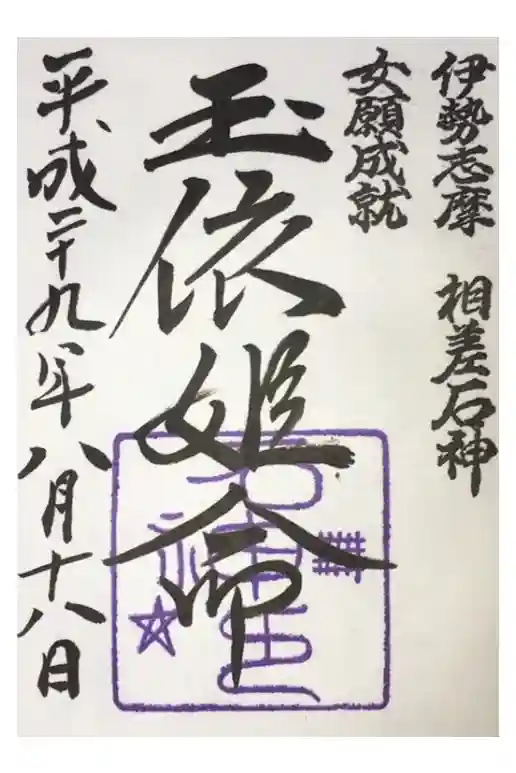 伊勢志摩 相差石神
女願成就
玉依姫命
平成二十九年八月十八日